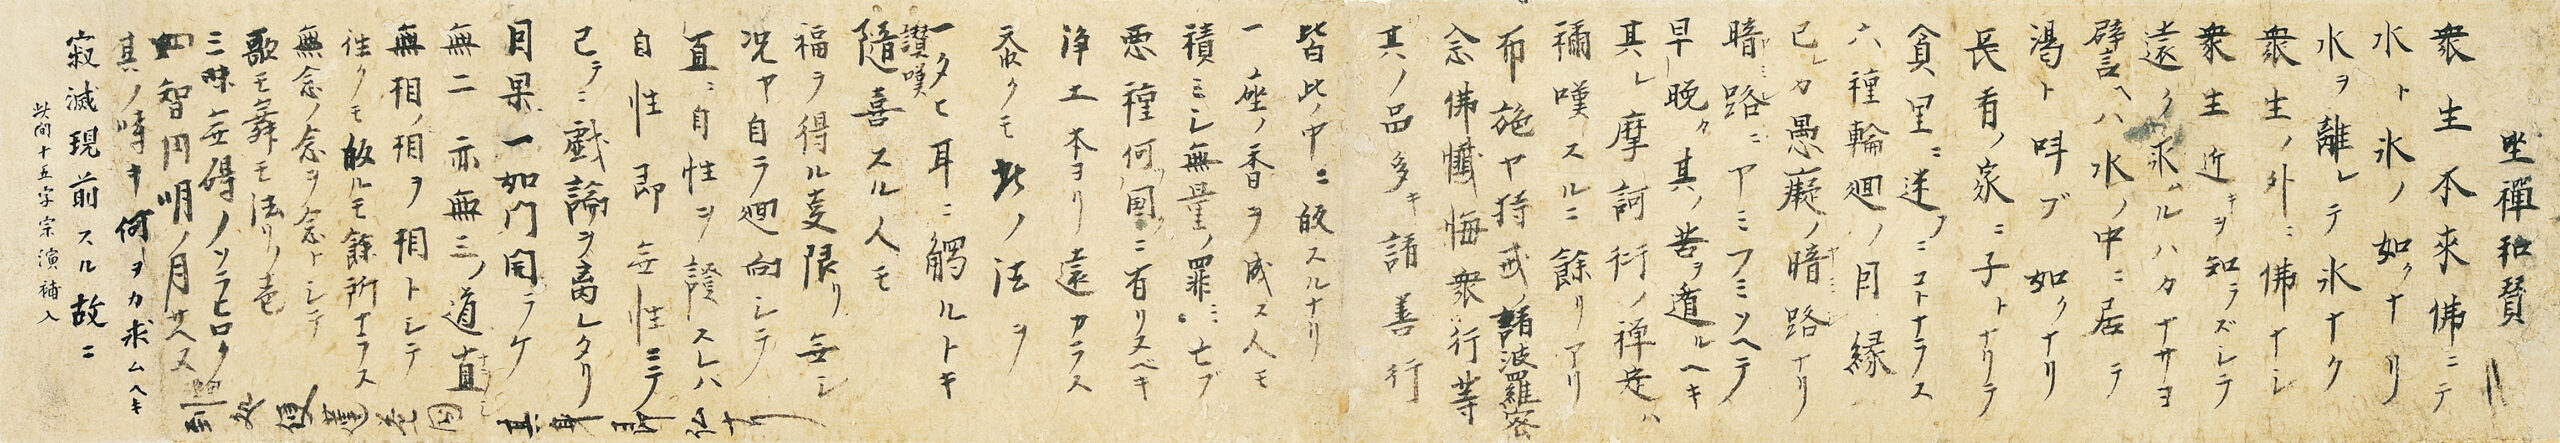 坐禪和賛
衆生本來佛ニテ
水ト氷ノ如クナリ
水ヲ離レテ氷ナク
衆生ノ外ニ佛ナシ
衆生近キヲ知ラズシテ
遠ク求ムルハカナサヨ
譬ヘハ水ノ中ニ居テ
渇ト呌ブ如クナリ
長者ノ家ニ子トナリテ
貧里ニ迷フニコトナラス
六種輪廻ノ因縁
己レカ愚癡ノ暗路ナリ
暗路ニヤミフミソヘテ
早晩カ其ノ苦ヲ遁ルヘキ
其レ摩訶衍ノ禅定ハ
稱嘆スルニ餘リアリ
布施ヤ持戒ノ諸波羅密
念佛懺悔衆行等
其ノ品多キ諸善行
皆此ノ中ニ皈スルナリ
一座ノ香ヲ成ス人モ
積ミシ無量ノ罪ミ亡ブ
悪種何国ニ有リヌベキ
浄土本ヨリ遠カラス
忝クモ此ノ法ヲ
一タヒ耳ニ觸ルトキ
讃嘆
隨喜スル人モ
福ヲ得ル支限リ無シ
况ヤ自ラ廻向シテ
直ニ自性ヲ證スレハ
自性即無性ニテ
已テニ戯論ヲ离レタリ
因果一如門開ラケ
無二亦無三ノ道直シ
無相ノ相ヲ相トシテ
徃クモ皈ルモ餘所ナラス
無念ノ念ヲ念トシテ
歌モ舞モ法リノ声
三昧無碍ノソラヒロク
四智円明ノ月サヘス
其ノ時キ何ヲカ求ムヘキ
寂滅現前スル故ニ
此間十五字宗演補入